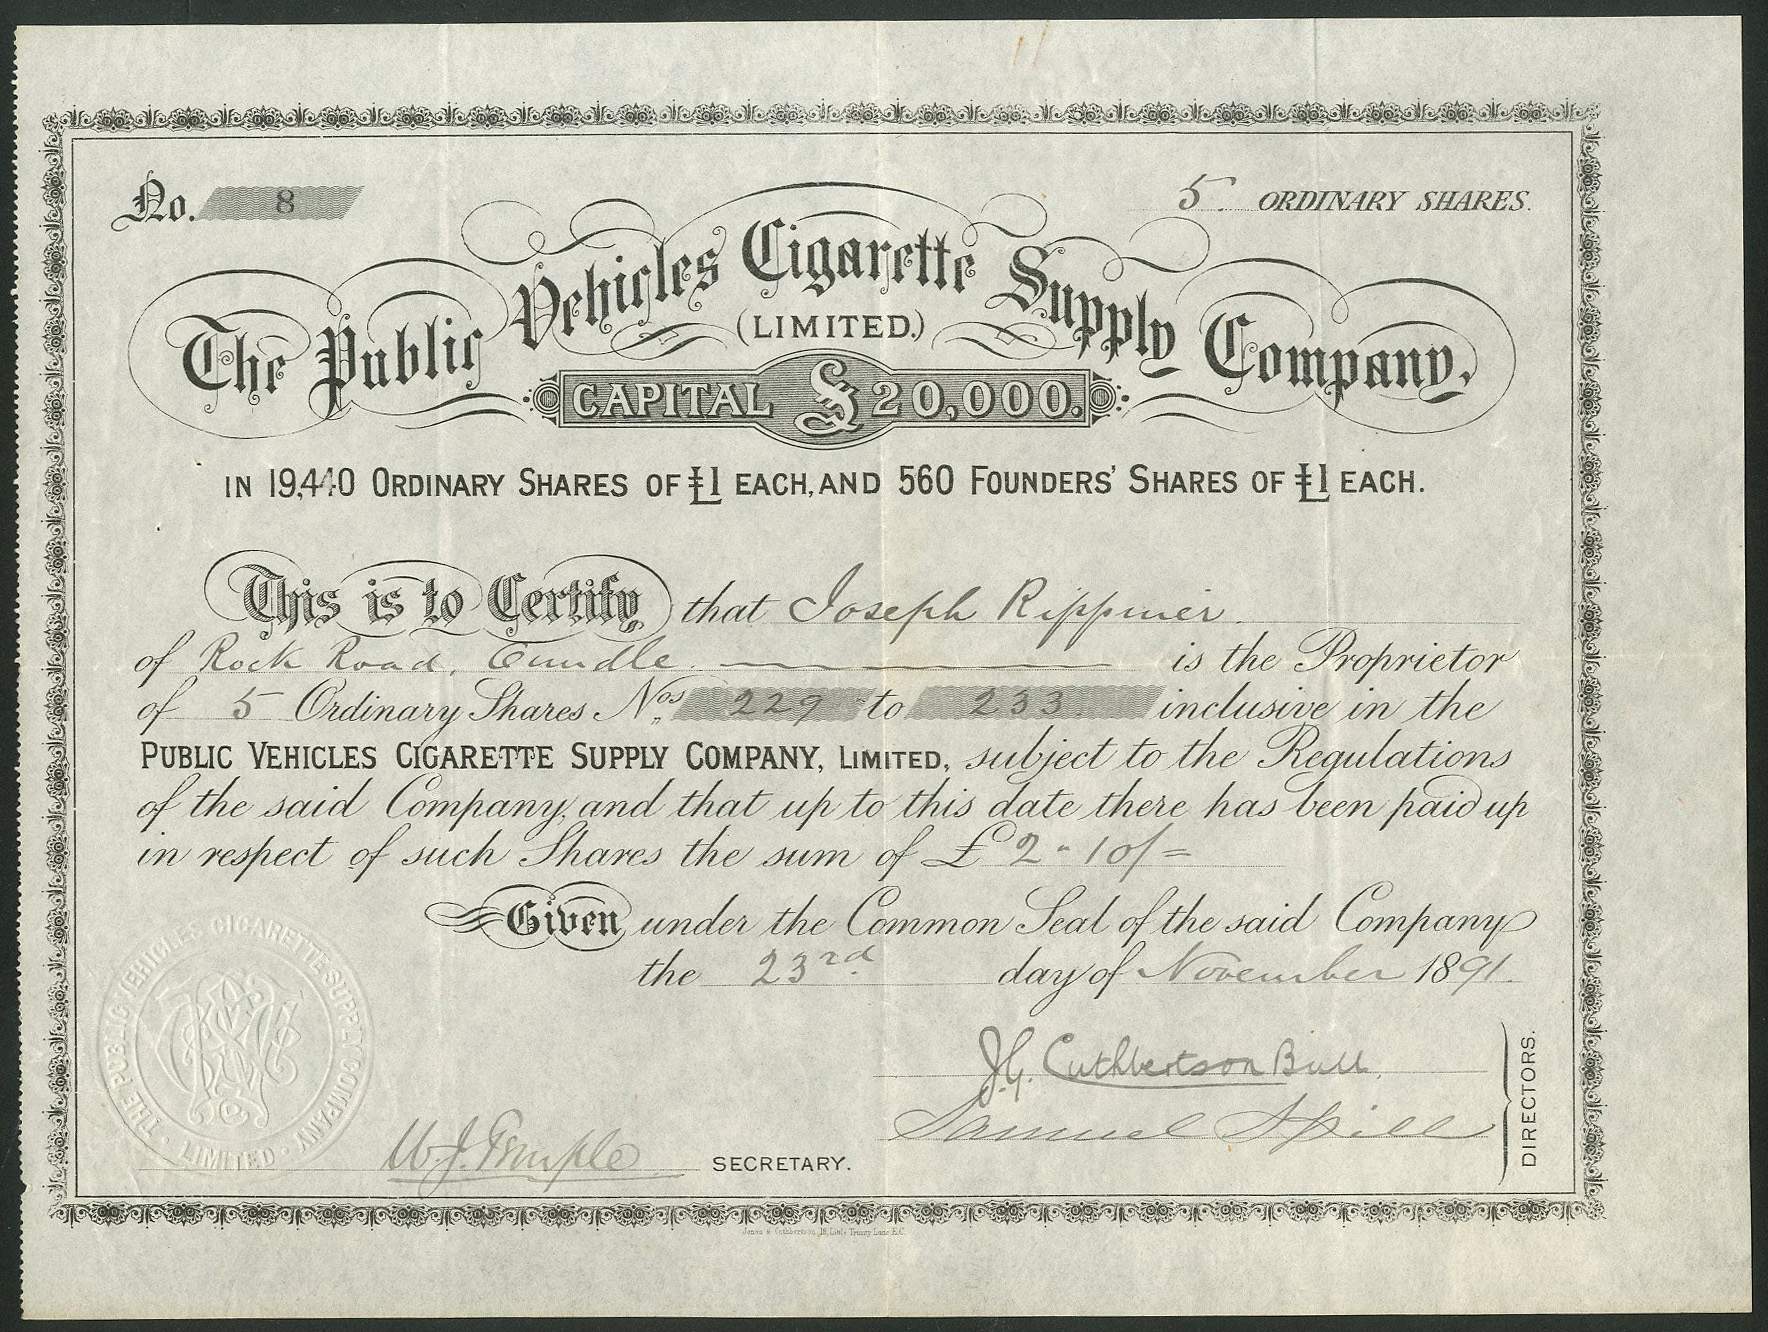 No. 8
5 ORDINARY SHARES.
The Public Vehicles Cigarette Supply Company,
(LIMITED.)
CAPITAL £20,000.
IN 19,440 ORDINARY SHARES OF £1 EACH, AND 560 FOUNDERS' SHARES OF £1 EACH.
This is to Certify that Joseph Rippiner
of Rock Road, Oundle. is the Proprietor
of 5 Ordinary Shares Nos 229 to 233 inclusive in the
PUBLIC VEHICLES CIGARETTE SUPPLY COMPANY, LIMITED, subject to the Regulations
of the said Company, and that up to this date there has been paid up
in respect of such Shares the sum of £ 2 " 10/=
Given under the Common Seal of the said Company
the 23rd day of November 1891.
J.G. Cuthbertson Bull.
Samuel Spill
DIRECTORS.
W. J. Temple SECRETARY.
THE PUBLIC VEHICLES CIGARETTE SUPPLY COMPANY · LIMITED ·
Jones & Cuthbertson, 18, Little Trinity Lane E.C.